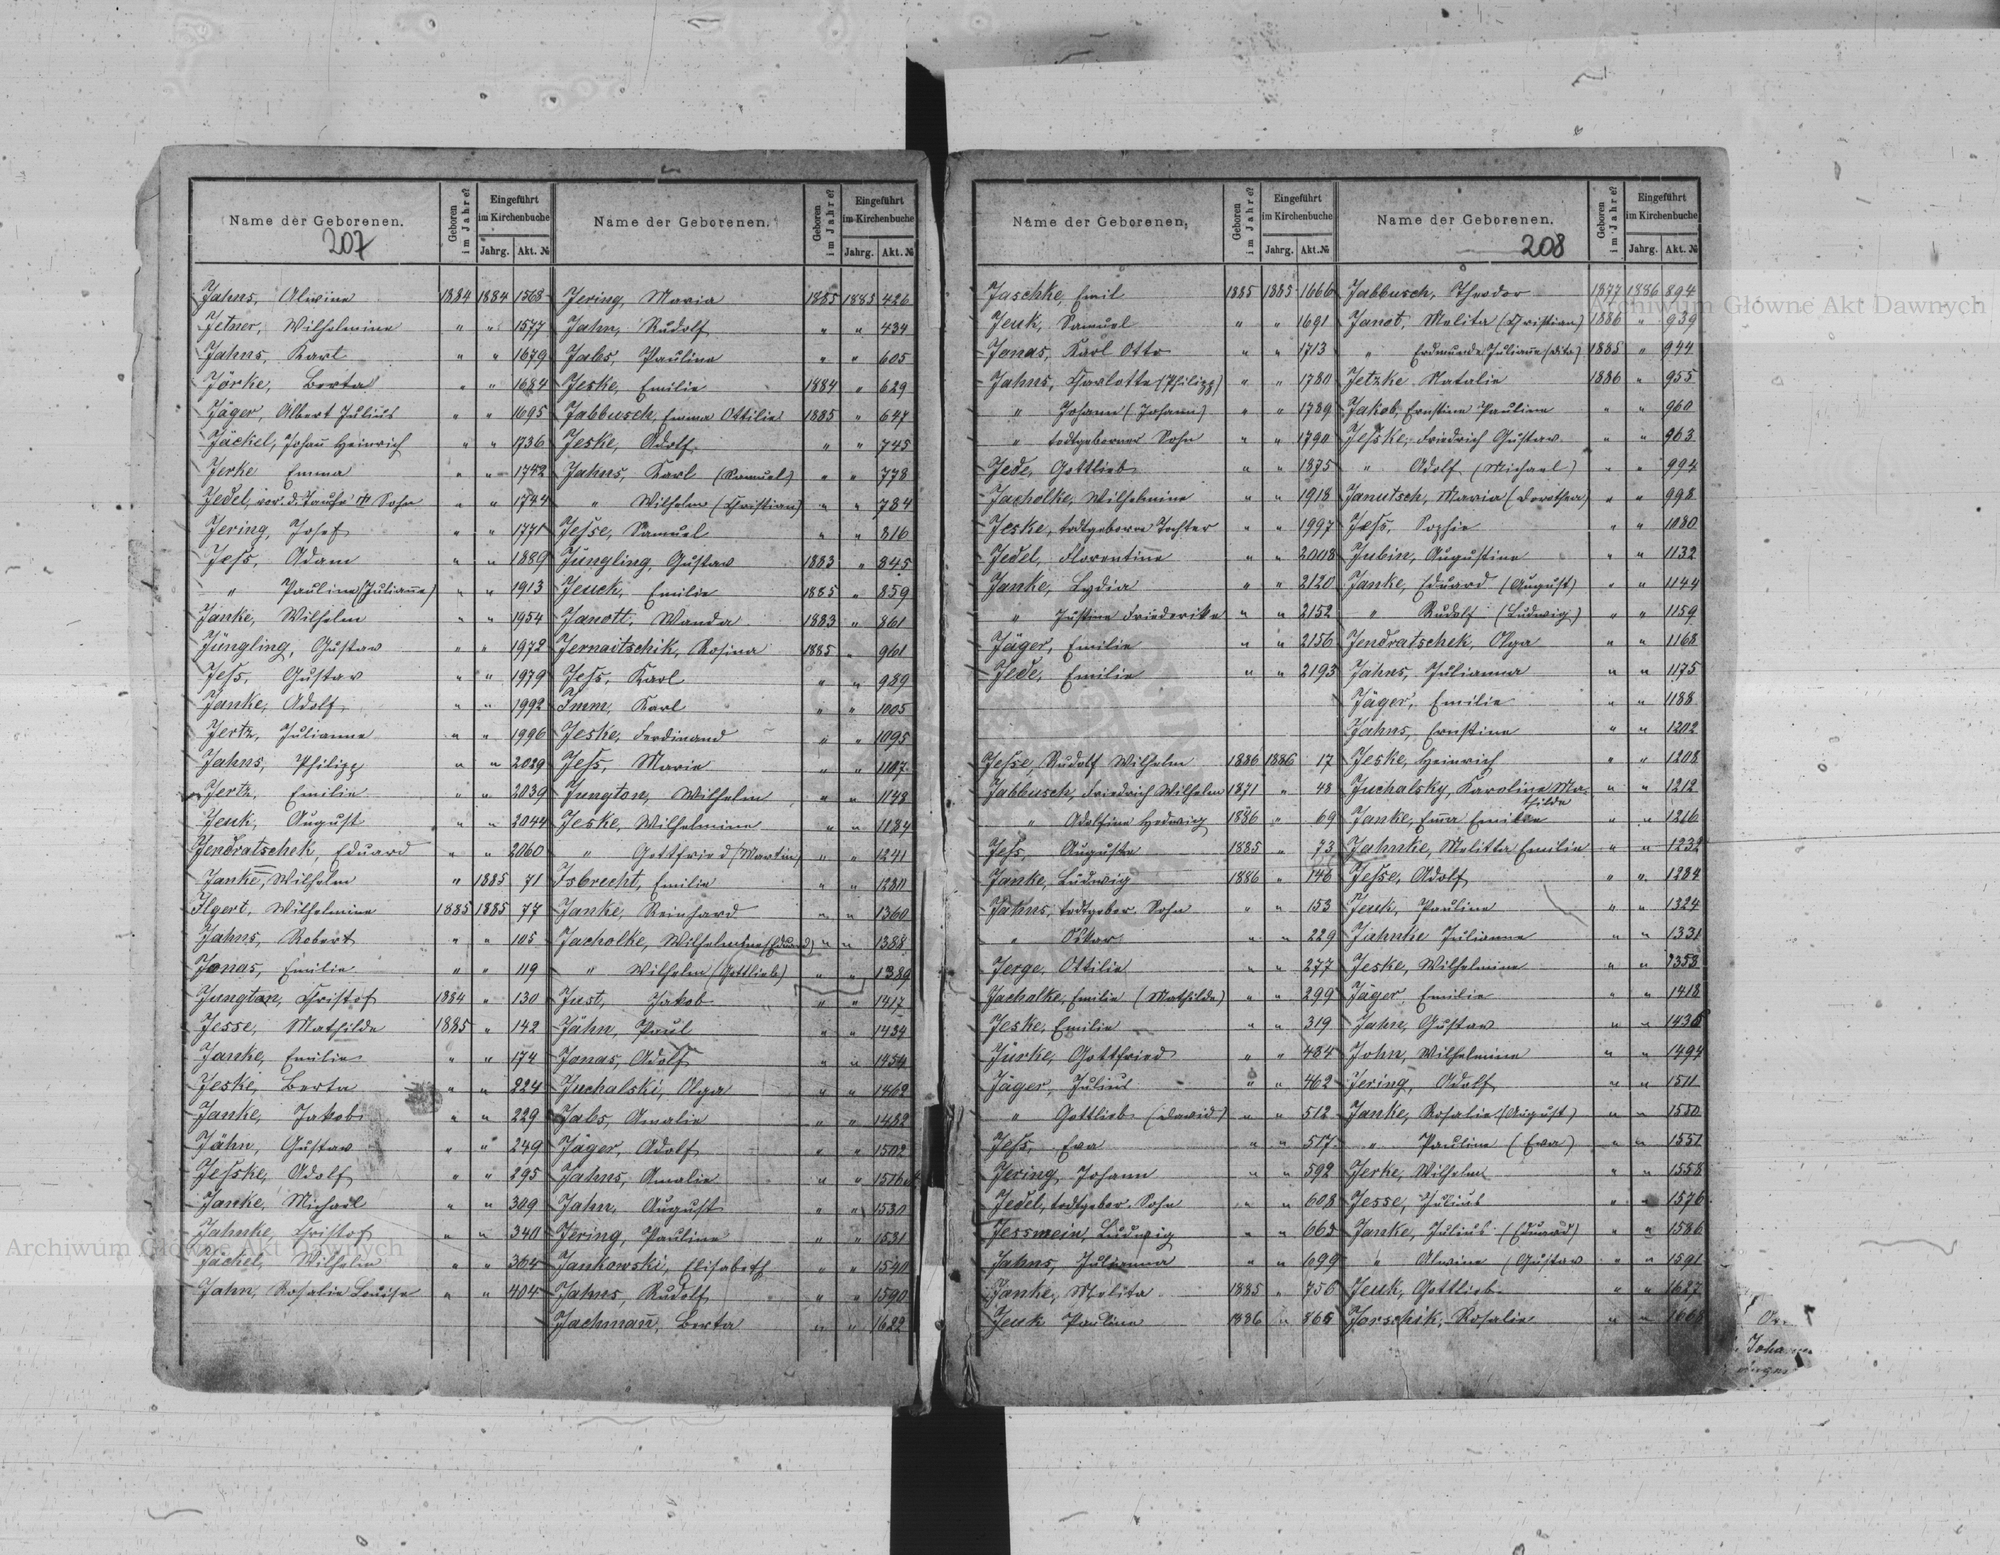 Name der Geborenen.
207
Geboren im Jahre?
Eingeführt im Kirchenbuche
Jahrg. Akt. №
Jahns, Alwine 1884 1884 1568
Jetner, Wilhelmine " " 1577
Jahns, Karl " " 1679
Jörke, Berta " " 1684
Jäger, Albert Julius " " 1695
Jäckel, Johañ Heinrich " " 1736
Jerke Emma " " 1742
Jedel, vor d. Taufe † Sohn " " 1744
Jering, Josef " " 1771
Jeſs, Adam " " 1889
" Pauline (Juliañe) " " 1913
Janke, Wilhelm " " 1954
Jüngling, Gustav " " 1972
Jeſs, Gustav " " 1979
Janke, Adolf " " 1992
Jertz, Julianne " " 1996
Jahns, Philipp " " 2029
Jertz, Emilie " " 2039
Jeuk, August " " 2044
Jendratschek, Eduard " " 2060
Janke, Wilhelm " 1885 71
Ilgert, Wilhelmine 1885 1885 77
Jahns, Robert " " 105
Jonas, Emilie " " 119
Jungton, Christof 1884 " 130
Jesse, Mathilde 1885 " 142
Janke, Emilie " " 174
Jeske, Berta " " 224
Janke, Jakob " " 229
Jähn, Gustav " " 249
Jeſske, Adolf " " 295
Janke, Michael " " 309
Jahnke, Christof " " 340
Jäckel, Wilhelm " " 364
Jahn, Rosalie Louise " " 404
Name der Geborenen.
Geboren im Jahre?
Eingeführt im Kirchenbuche
Jahrg. Akt. №
Jering, Maria 1885 1885 426
Jahn, Rudolf " " 434
Jabs, Pauline " " 605
Jeske, Emilie 1884 " 629
Jabbusch, Emma Ottilie 1885 " 647
Jeske, Adolf " " 745
Jahns, Karl (Samuel) " " 778
" Wilhelm (Christian) " " 784
Jeſse, Samuel " " 816
Jüngling, Gustav 1883 " 845
Jeuck, Emilie 1885 " 859
Janott, Wanda 1883 " 861
Jernaitschik, Rosina 1885 " 961
Jeſs, Karl " " 989
Imm, Karl " " 1005
Jeske, Ferdinand " " 1095
Jeſs, Marie " " 1107
Jungton, Wilhelm " " 1148
Jeske, Wilhelmine " " 1184
" Gottfried (Martin) " " 1241
Isbrecht, Emilie " "
Janke, Reinhard " " 1360
Jacholke, Wilhelmine (Eduard) " " 1388
" Wilhelm (Gottlieb) " " 1389
Just, Jakob " " 1417
Jähn, Paul " " 1434
Jonas, Adolf " " 1454
Juchalski, Olga " " 1462
Jabs, Amalie " " 1482
Jäger, Adolf " " 1502
Jahns, Amalie " " 1516
Jahn, August " " 1530
Jering, Pauline " " 1531
Jankowski, Elisabeth " " 1540
Jahns, Rudolf " " 1590
Jachmañ, Berta " " 1622
Name der Geborenen.
Geboren im Jahre?
Eingeführt im Kirchenbuche
Jahrg. Akt. №
Jaschke, Emil 1885 1885 1666
Jeuk, Samuel " " 1691
Jonas, Karl Otto " " 1713
Jahns, Charlotte (Philipp) " " 1780
" Johann (Johann) " " 1789
" todtgeborner Sohn " " 1790
Jede, Gottlieb " " 1875
Jacholke, Wilhelmine " " 1918
Jeske, todtgeborne Tochter " " 1997
Jedel, Florentine " " 2008
Janke, Lydia " " 2120
" Justine Friederike " " 2152
Jäger, Emilie " " 2156
Jede, Emilie " " 2193
Jeſse, Rudolf Wilhelm 1886 1886 17
Jabbusch, Friedrich Wilhelm 1871 " 48
" Adolfine Hedwig 1886 " 69
Jeſs, Auguste 1885 " 73
Janke, Ludwig 1886 " 146
Jahns, todtgebor. Sohn " " 153
" Oskar " " 229
Jerge, Ottilie " " 277
Jacholke, Emilie (Mathilde) " " 299
Jeske, Emilie " " 319
Jürke, Gottfried " " 434
Jäger, Julius " " 462
" Gottlieb (David) " " 512
Jeſs, Eva " " 517
Jering, Johann " " 592
Jedel, todtgebor. Sohn " " 608
Jessmein, Ludwig " " 663
Jahns, Julianna " " 699
Janke, Melita 1885 " 756
Jeuk Pauline 1886 " 865
Name der Geborenen.
208
Geboren im Jahre?
Eingeführt im Kirchenbuche
Jahrg. Akt. №
Jabbusch, Theodor 1877 1886 894
Janot, Melita (Christian) 1886 " 939
" Erdmunde Juliañe (dito) 1885 " 944
Jetzke Natalie 1886 " 955
Jakob, Ernstine Pauline " " 960
Jeſske, Friedrich Gustav " " 963
" Adolf (Michael) " " 994
Janutsch, Maria (Dorothea) " " 998
Jeſs, Sophie " " 1080
Jubin, Augustine " " 1132
Janke, Eduard (August) " " 1144
" Rudolf (Ludwig) " " 1159
Jendratschek, Olga " " 1168
Jahns, Julianna " " 1175
Jäger, Emilie " " 1188
Jahns, Ernstine " " 1202
Jeske, Heinrich " " 1208
Juchalsky, Karoline Mathilde " " 1212
Janke, Em̃a Emilie " " 1216
Jahnke, Melitta Emilie " " 1232
Jeſse, Adolf " " 1284
Jeuk, Pauline " " 1324
Jahnke Julianne " " 1331
Jeske, Wilhelmine " " 1353
Jäger, Emilie " " 1418
Jahn, Gustav " " 1436
John, Wilhelmine " " 1494
Jering, Adolf " " 1511
Janke, Rosalie (August) " " 1550
" Pauline (Eva) " " 1551
Jerke, Wilhelm " " 1558
Jesse, Julius " " 1576
Janke, Julius (Eduard) " " 1586
" Alwine (Gustav " " 1591
Jeuk, Gottlieb " " 1627
Jorschik, Rosalie " "
Johann
Archiwum Główne Akt Dawnych
Archiwum Główne Akt Dawnych